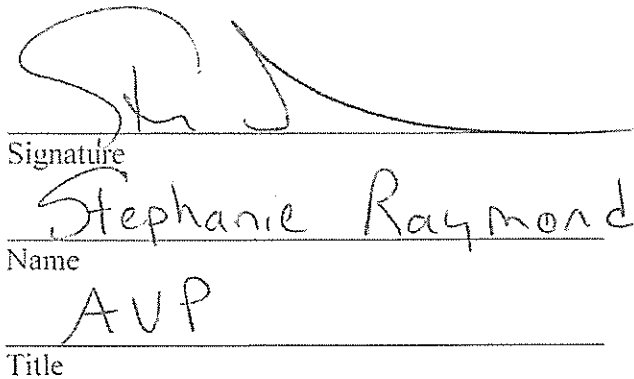 Signature
Stephanie Raymond
Name
AVP
Title